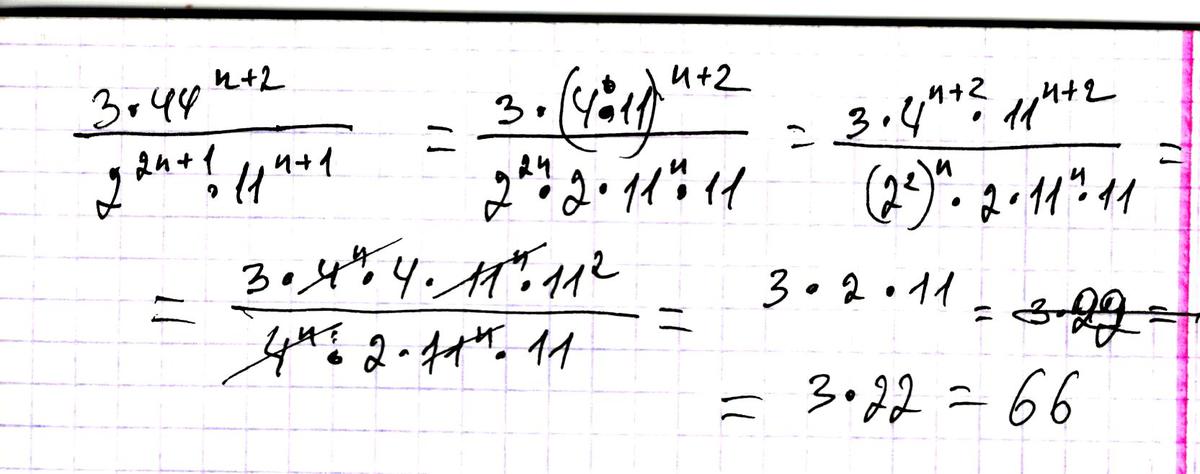 \frac{3 \cdot 44^{n+2}}{2^{2n+1} \cdot 11^{n+1}} = \frac{3 \cdot (4 \cdot 11)^{n+2}}{2^{2n} \cdot 2 \cdot 11^{n} \cdot 11} = \frac{3 \cdot 4^{n+2} \cdot 11^{n+2}}{(2^{2})^{n} \cdot 2 \cdot 11^{n} \cdot 11} =
= \frac{3 \cdot 4^{n} \cdot 4 \cdot 11^{n} \cdot 11^{2}}{4^{n} \cdot 2 \cdot 11^{n} \cdot 11} = 3 \cdot 2 \cdot 11 = 3 \cdot 22 =
= 3 \cdot 22 = 66